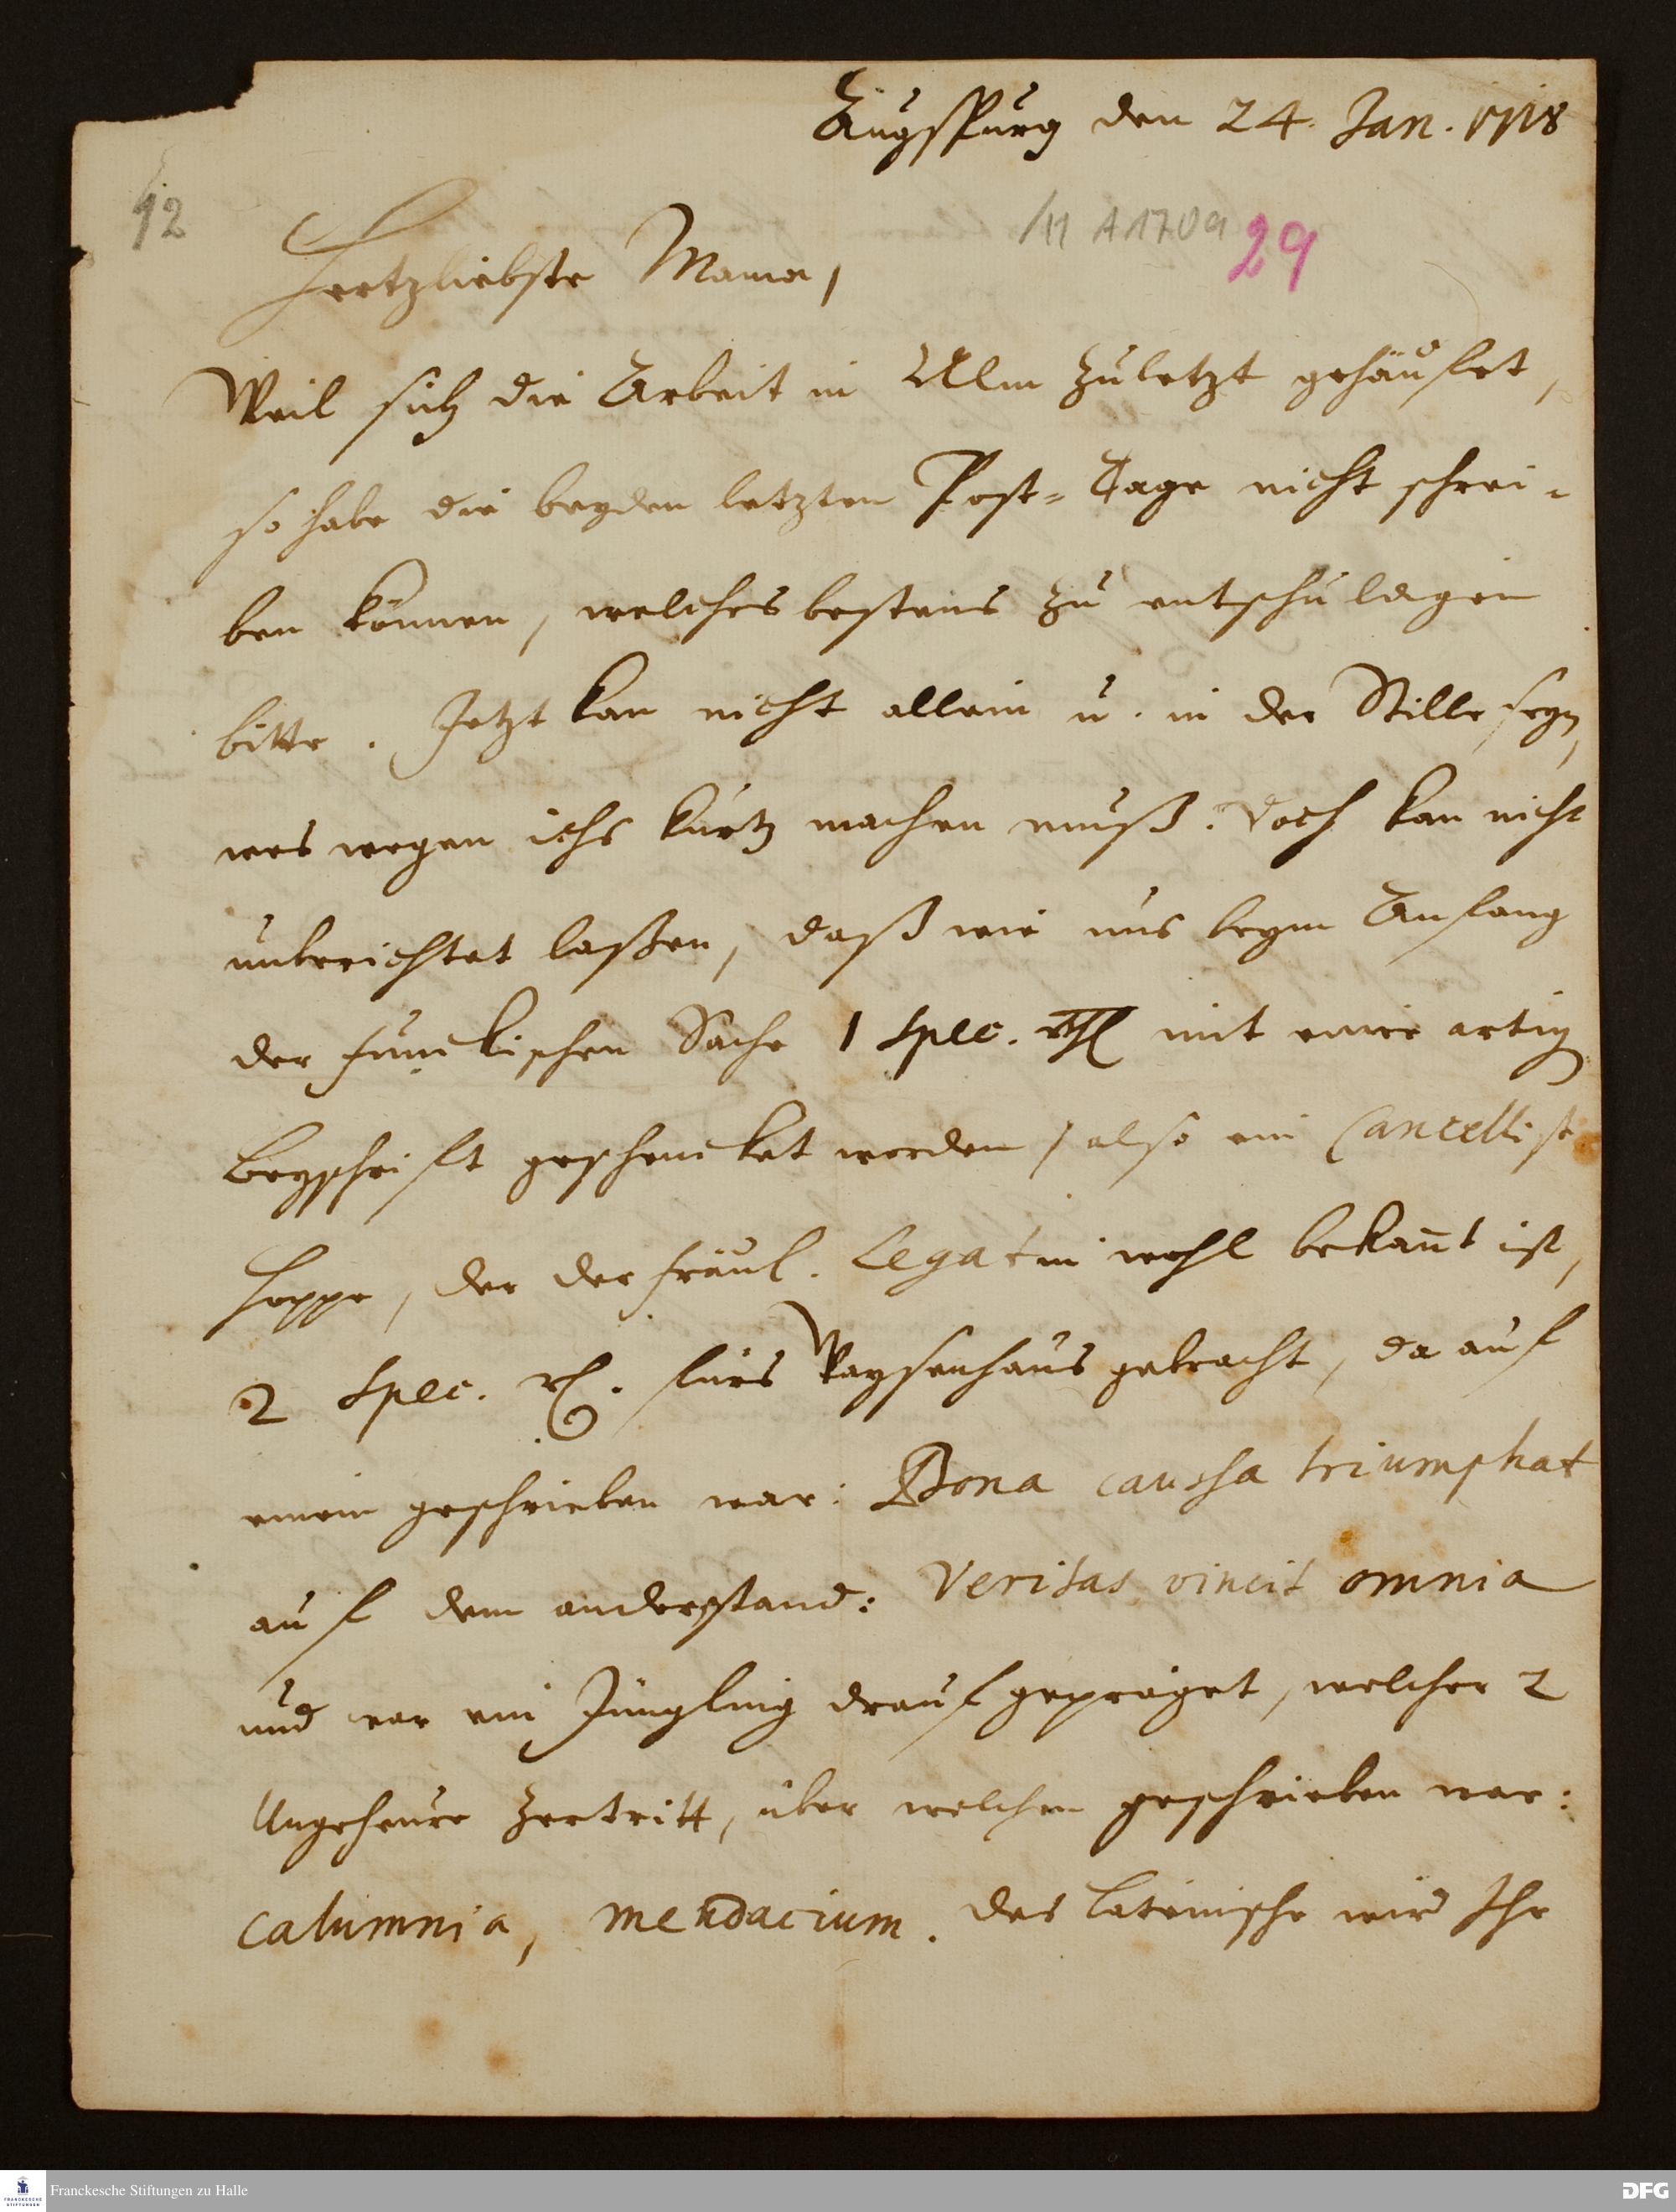 Augspurg den 24. Jan. 1718
12
/11 A 170 a
29
Hertzliebste Mama,
Weil sich die Arbeit in Ulm zuletzt gehäufet,
so habe die beyden letzten Post-Tage nicht schrei-
ben können, welches bestens zu entschuldigen
bitte. Jetzt kan nicht allein u. in der Stille seyn,
wes wegen ichs kurtz machen muß. Doch kan nicht
unberichtet laßen, daß wie uns beym Anfang
der funckischen Sache 1 Spec. rthl mit einer artig
Beyschrifft geschencket worden, also ein Cancellist
Hoppe, der der Fräul. Legatin wohl bekañt ist,
2 Spec. rl. fürs Waysenhaus gebracht, da auf
einem geschrieben war: Bona caussa triumphat
auf dem andern stand: Veritas vincit omnia
und war ein Jüngling drauf gepräget, welcher 2
Ungeheure zertritt, über welchen geschrieben war:
calumnia, mendacium. Das lateinische wird Ihr
Franckesche Stiftungen zu Halle
DFG